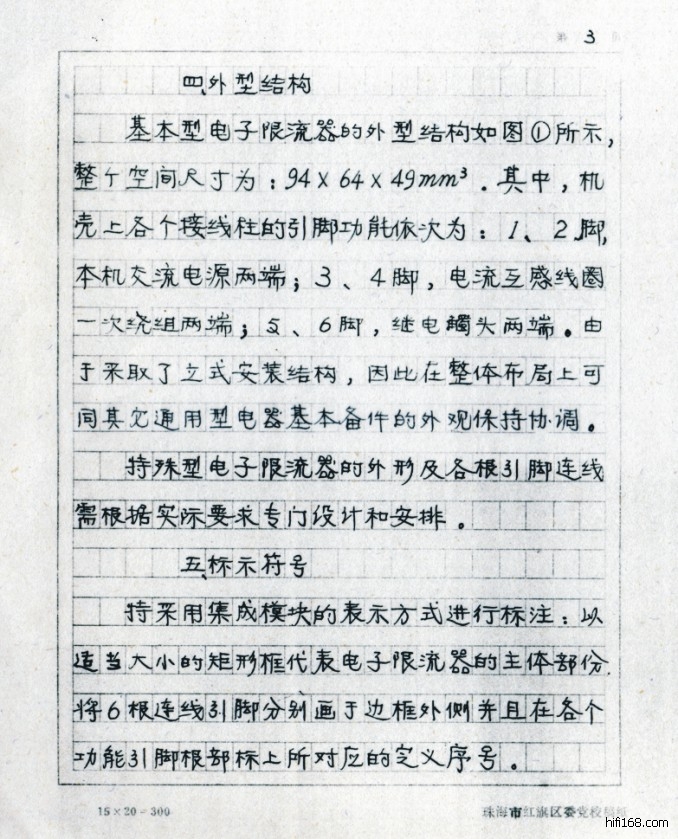 第 3 页
四、外型结构
基本型电子限流器的外型结构如图①所示,
整个空间尺寸为：94×64×49mm³。其中，机
壳上各个接线柱的引脚功能依次为：1、2脚,
本机交流电源两端；3、4脚，电流互感线圈
一次绕组两端；5、6脚，继电触头两端。由
于采取了立式安装结构，因此在整体布局上可
同其它通用型电器基本备件的外观保持协调。
特殊型电子限流器的外形及各根引脚连线
需根据实际要求专门设计和安排。
五、标示符号
特采用集成模块的表示方式进行标注：以
适当大小的矩形框代表电子限流器的主体部份.
将6根连线引脚分别画于边框外侧并且在各个
功能引脚根部标上所对应的定义序号。
15×20=300 珠海市红旗区委党校
hifi168.com